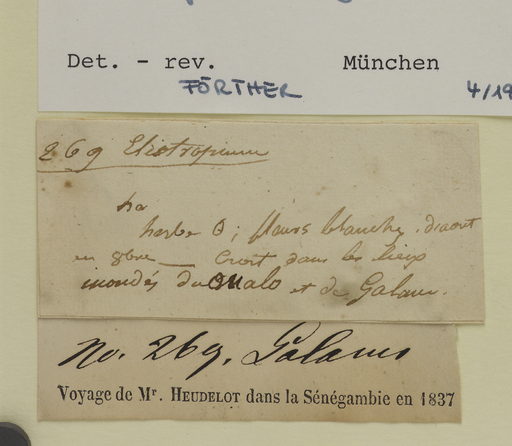 Det. - rev. München
FÖRTHER 4/19
269 Eliotropium
herbe ⊙; fleurs blanches, d'aout
en 8bre — Croit dans les lieux
inondés du oualo et de Galam.
No. 269. Galam
Voyage de Mr. HEUDELOT dans la Sénégambie en 1837